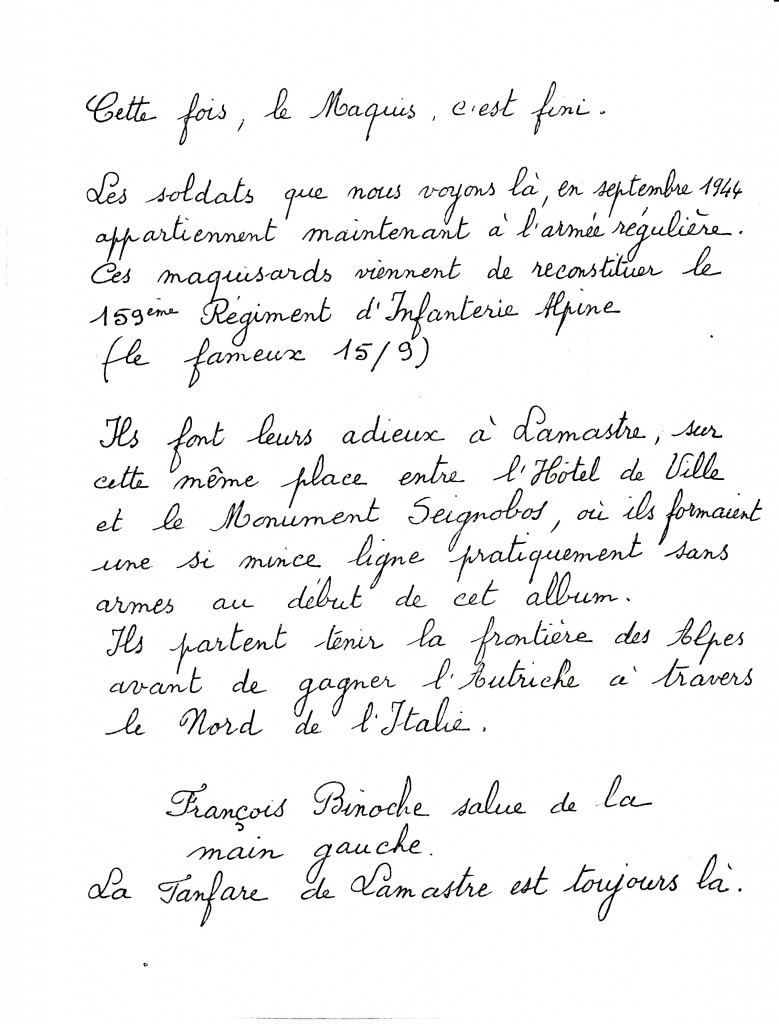 Cette fois, le Maquis, c'est fini.
Les soldats que nous voyons là, en septembre 1944
appartiennent maintenant à l'armée régulière.
Ces maquisards viennent de reconstituer le
159ème Régiment d'Infanterie Alpine
(le fameux 15/9)
Ils font leurs adieux à Lamastre, sur
cette même place entre l'Hôtel de Ville
et le Monument Seignobos, où ils formaient
une si mince ligne pratiquement sans
armes au début de cet album.
Ils partent tenir la frontière des Alpes
avant de gagner l'Autriche à travers
le Nord de l'Italie.
François Binoche salue de la
main gauche.
La Fanfare de Lamastre est toujours là.